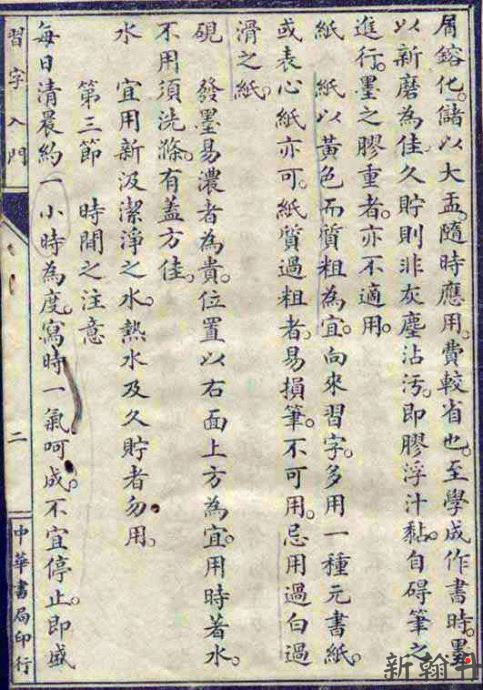 屑鎔化。儲以大盂。隨時應用。費較省也。至學成作書時。墨
以新磨為佳。久貯則非灰塵沾污。即膠浮汁黏。自碍筆之
進行。墨之膠重者。亦不適用。
紙　紙以黃色而質粗為宜。向來習字。多用一種元書紙。
或表心紙亦可。紙質過粗者。易損筆。不可用。忌用過白過
滑之紙。
硯　發墨易濃者為貴。位置以右面上方為宜。用時著水。
不用須洗滌。有蓋方佳。
水　宜用新汲潔淨之水。熱水及久貯者勿用。
第三節　時間之注意
每日清晨約一小時為度。寫時一氣呵成。不宜停止。即盛
習字入門
二
中華書局印行
新翰升